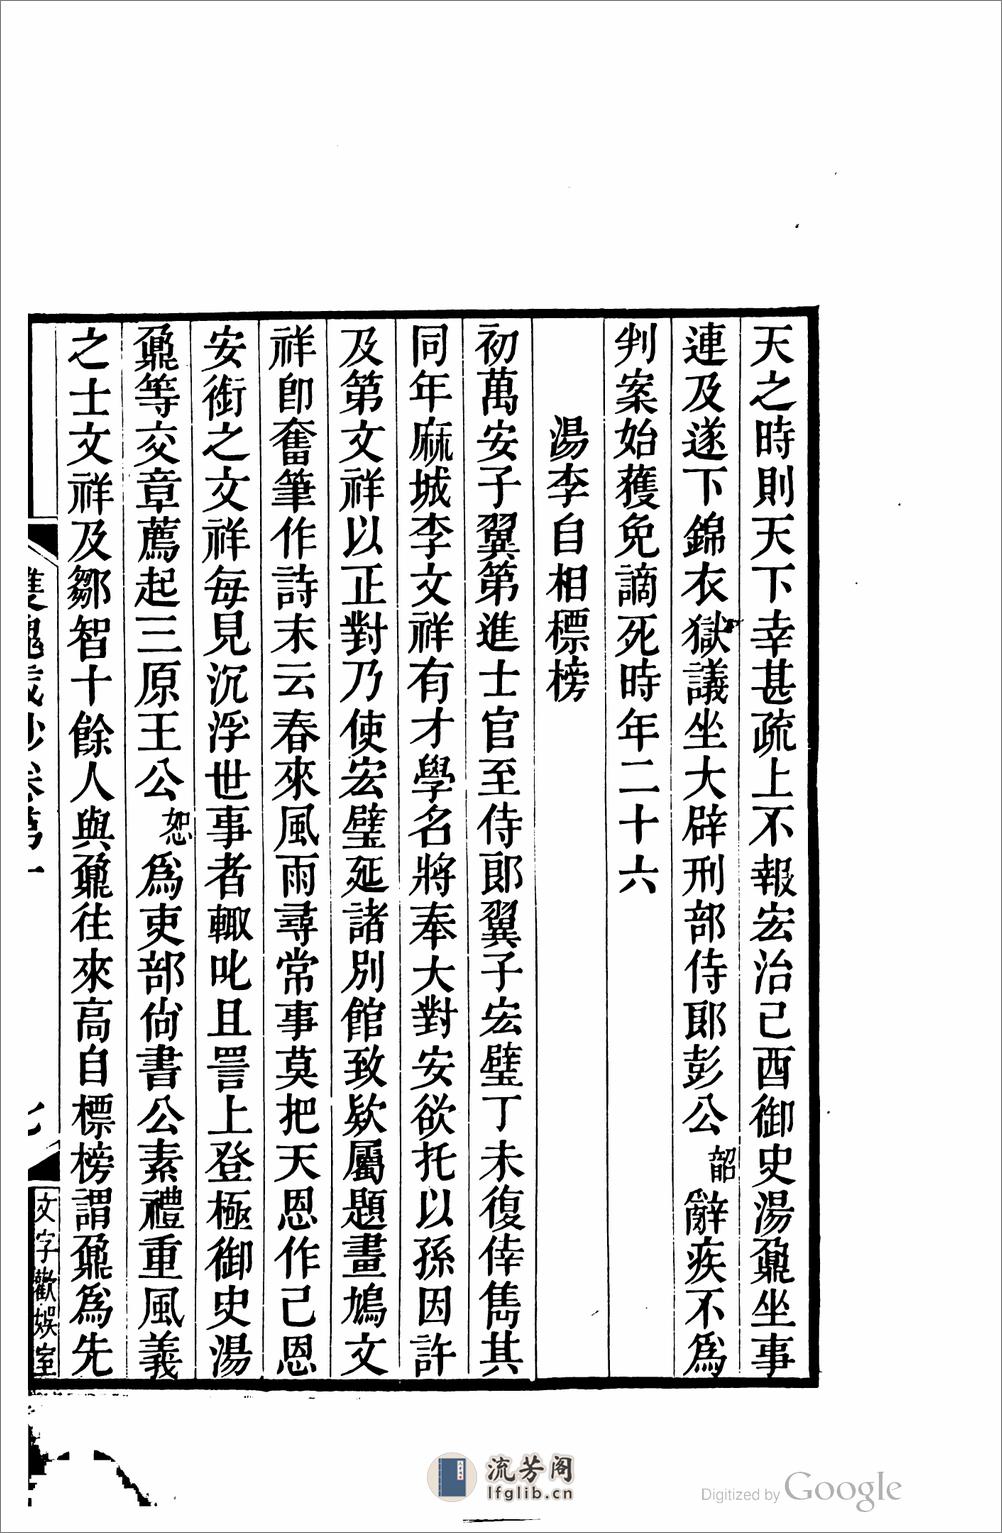 天之時則天下幸甚疏上不報宏治己酉御史湯鼐坐事
連及遂下錦衣獄議坐大辟刑部侍郎彭公韶辭疾不爲
判案始獲免謫死時年二十六
湯李自相標榜
初萬安子翼第進士官至侍郎翼子宏璧丁未復倖雋其
同年麻城李文祥有才學名將奉大對安欲托以孫因許
及第文祥以正對乃使宏璧延諸別館致欵屬題畫鳩文
祥卽奮筆作詩末云春來風雨尋常事莫把天恩作己恩
安銜之文祥每見沉浮世事者輙叱且詈上登極御史湯
鼐等交章薦起三原王公恕爲吏部尙書公素禮重風義
之士文祥及鄒智十餘人與鼐往來高自標榜謂鼐爲先
雙槐歲抄卷第十
七
文字歡娛室
流芳阁
lfglib.cn
Digitized by Google